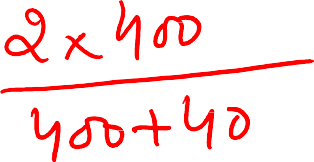 2 x 400
400 + 40